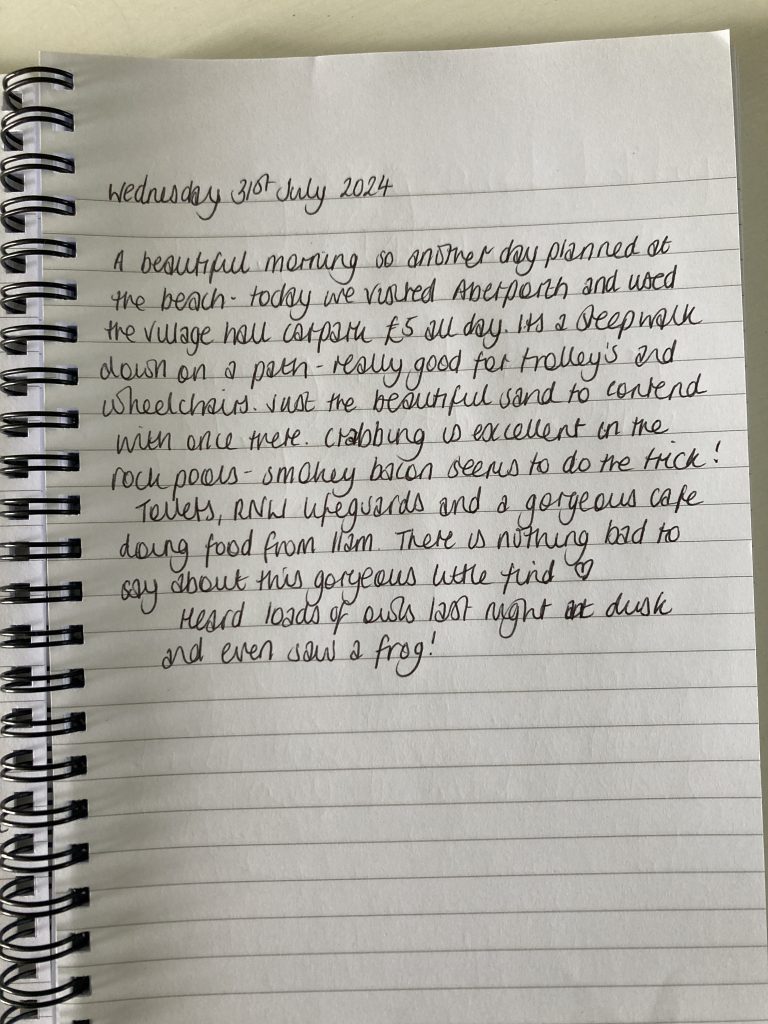 Wednesday 31st July 2024
A beautiful morning so another day planned at
the beach - today we visited Aberporth and used
the village hall carpark £5 all day. Its a steep walk
down on a path - really good for trolley's and
wheelchairs. Just the beautiful sand to contend
with once there. Crabbing is excellent in the
rock pools - smokey bacon seems to do the trick!
Toilets, RNLI lifeguards and a gorgeous cafe
doing food from 11am. There is nothing bad to
say about this gorgeous little find ♡
Heard loads of owls last night at dusk
and even saw a frog!